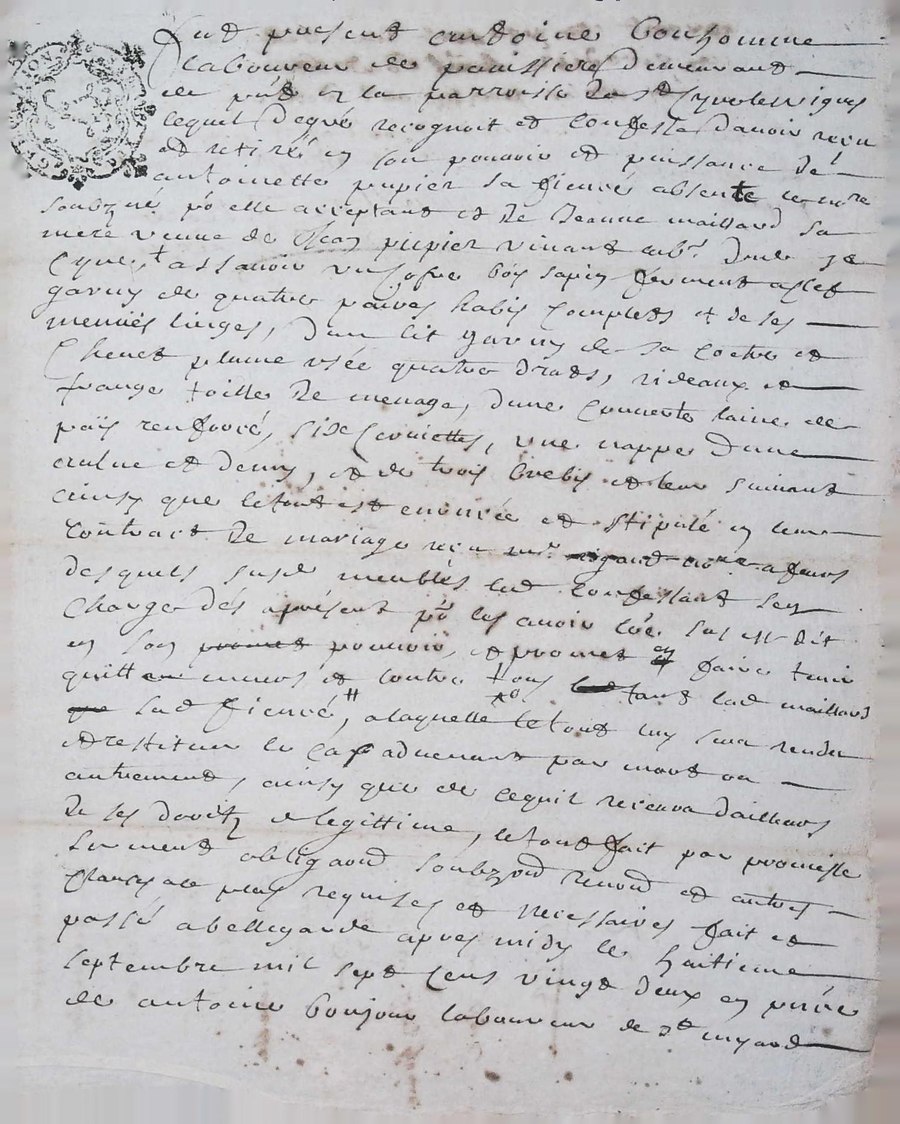 fut present antoine bonhomme
laboureur de demeurant
de pnt en la parroisse de St Cyr les vignes
lequel degré recognoit et confesse d'avoir receu
et retiré en son pouvoir et puissance de
antoinette pupier sa fiencé absente le nre
soubzné po elle acceptant et de Jeanne maillard sa
mere veuve de Jean pupier vivant dud St
Cyre, assavoir un cofre bois sapin fermant a clef
garny de quatre paires habis complets et de ses
menués linges, d'un lit garny de sa coetre et
Chevet plume usée quatre draps, rideaux et
frange toille de menage, d'une couverte laine de
païs renforcé, six serviettes, une nappe d'une
aulne et demy, et de trois brebis et leur suivant
ainsy que le tout est enoncée et stipulé en leur
Contract de mariage receu
desquels susd meubles led Confessant s'en
Charge dés apresent po les avoir
en son promet pouvoir, et promet en faire tenir
quitte envers et contre tous tant lad maillard
que lad fiencé, a laquelle le tout luy sera rendu
et restitué le cas advenant par mort ou
autrement, ainsy que de ce quil recevra dailleurs
de ses droitz et legittime, le tout fait par promesse
serment obligaond soubzond renond et autres
Clauses a ce plus requises et necessaires fait et
passé a bellegarde apres midy le huitieme
septembre mil sept cens vingt deux en pnce
de antoine bonjour laboureur de St